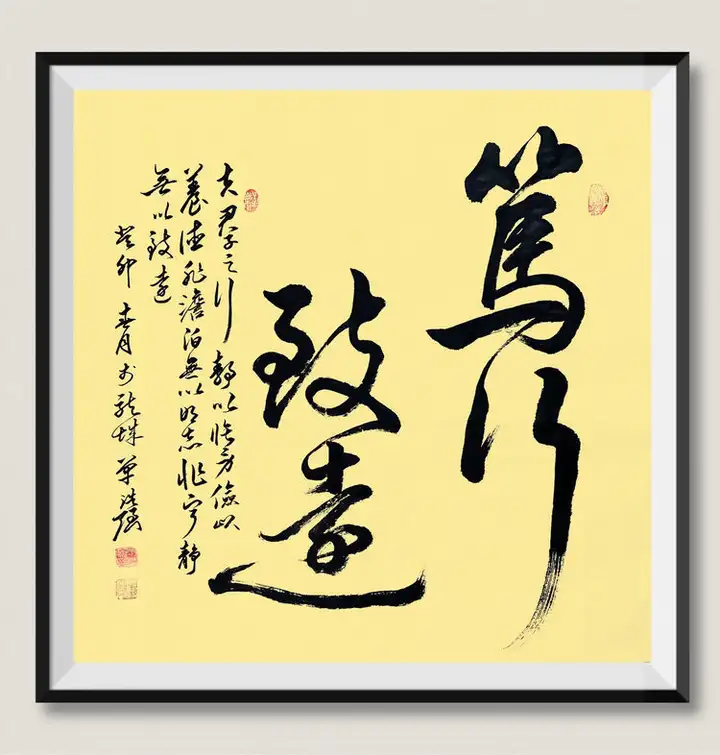 篤行
致遠
夫君子之行靜以修身儉以
養德非澹泊無以明志非寧靜
無以致遠
癸卯春月於龍